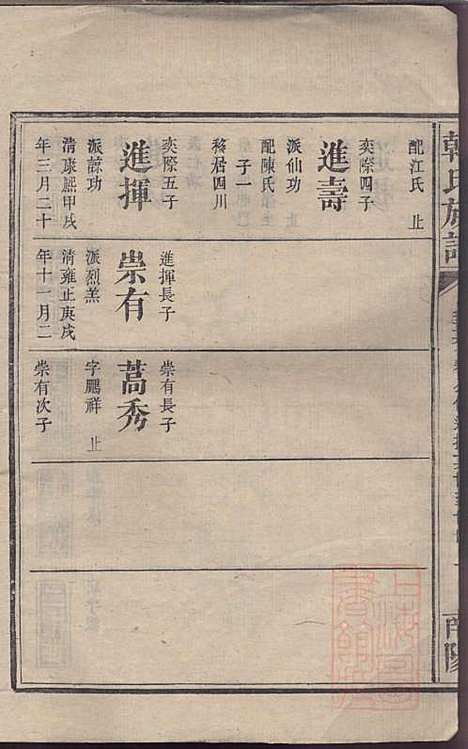 韓氏族譜
南陽
配江氏 止
進壽
奕際四子
派仙功
配陳氏
子一
移居四川
進揮
奕際五子
派諒功
清康熙甲戌
年三月二十
進揮長子
崇有
派烈羔
清雍正庚戌
年十一月二
崇有長子
蒿秀
字鵬祥 止
崇有次子